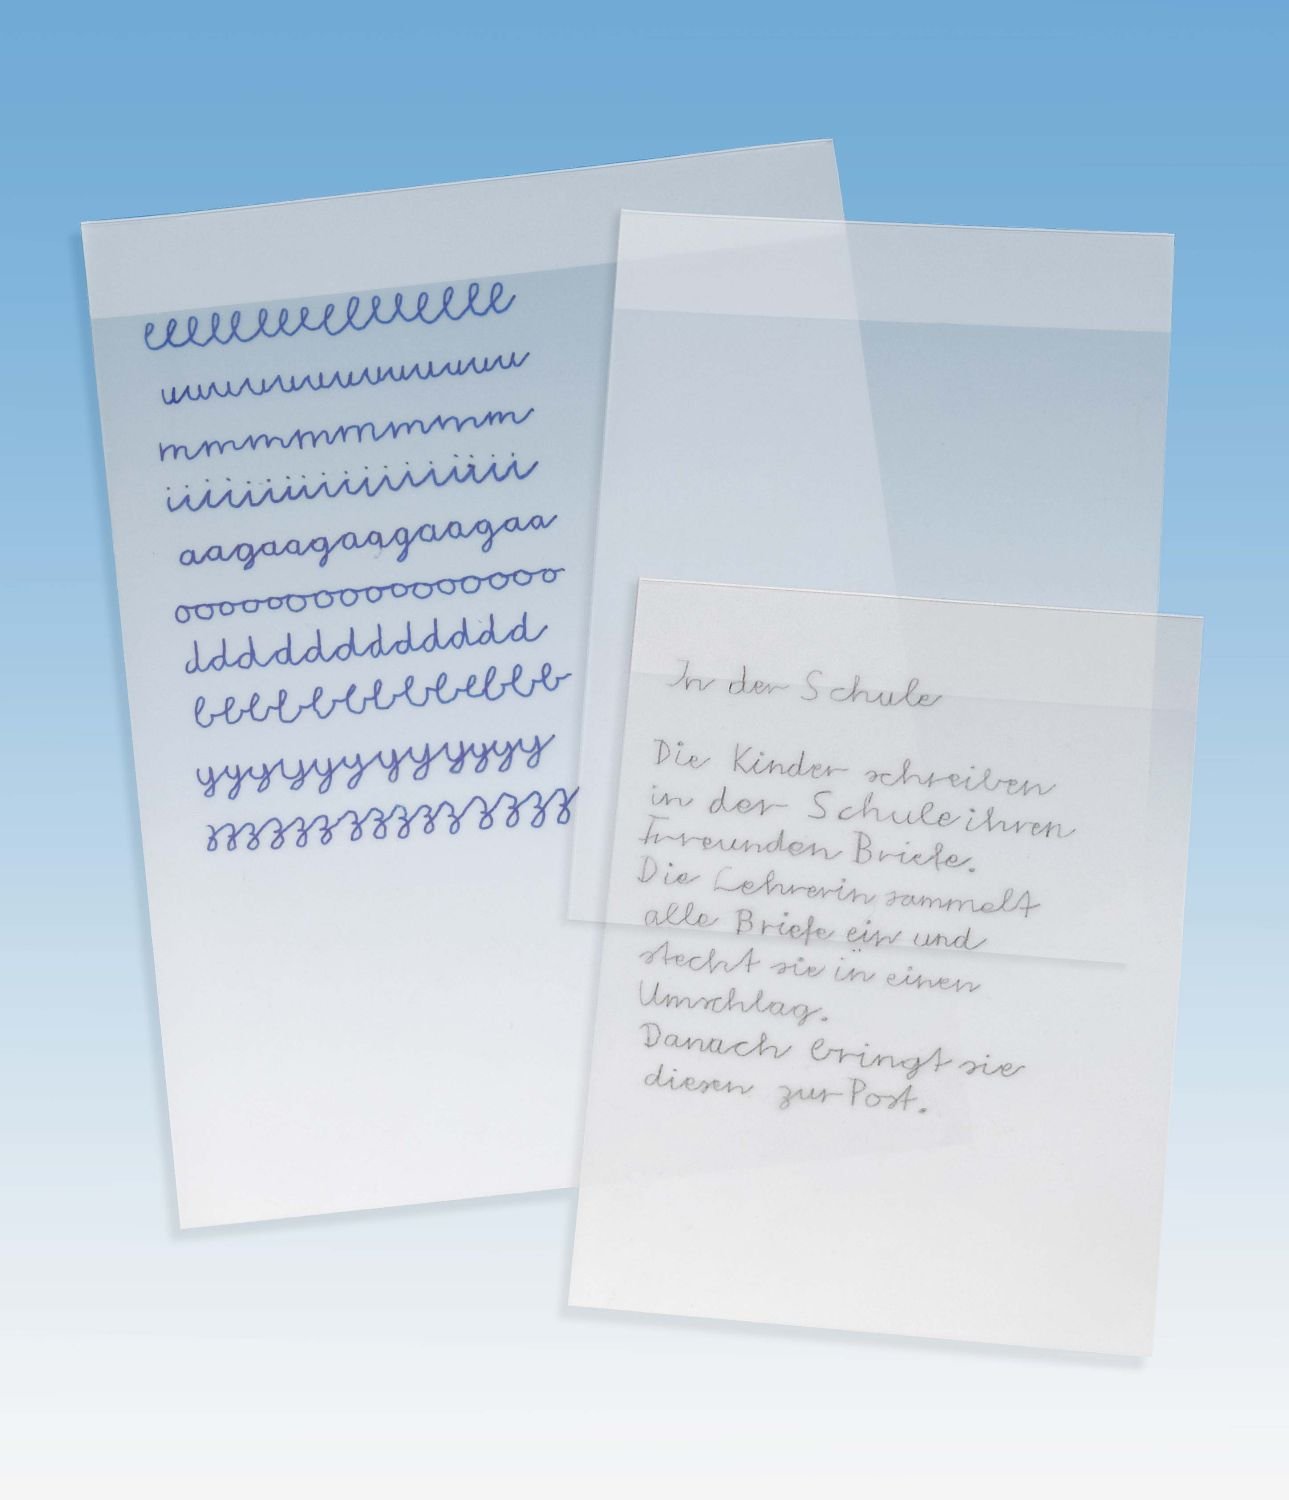 eeeeeeeeeeeeeeee
uuuuuuuuuuuuu
mmmmmmmm
iiiiiiiiiiiiiiiiii
aagaagaagaagaa
oooooooooooooooo
dddddddddddd
bbbbbbbbbbbb
yyyyyyyyyyyy
zzzzzzzzzzzzzz
In der Schule
Die Kinder schreiben
in der Schule ihren
Freunden Briefe.
Die Lehrerin sammelt
alle Briefe ein und
stecht sie in einen
Umschlag.
Danach bringt sie
diesen zur Post.